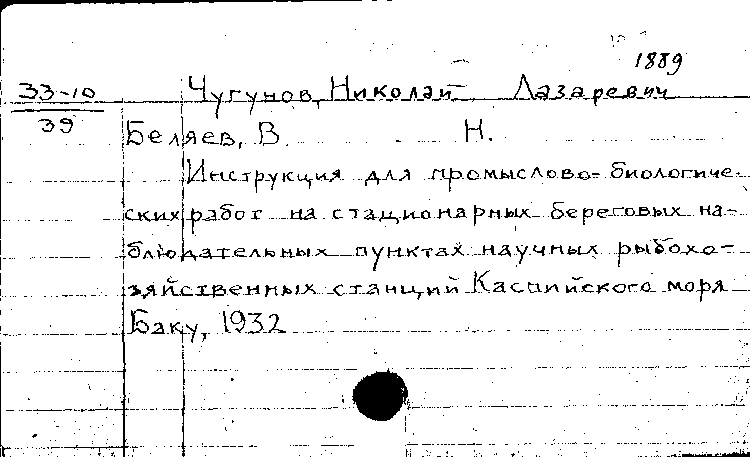 1889
33-10 Чугунов, Николай Лазаревич
39
Беляев, В. Н.
Инструкция для промыслово-биологиче-
ских работ на стационарных береговых на-
блюдательных пунктах научных рыбохо-
зяйственных станций Каспийского моря
Баку, 1932